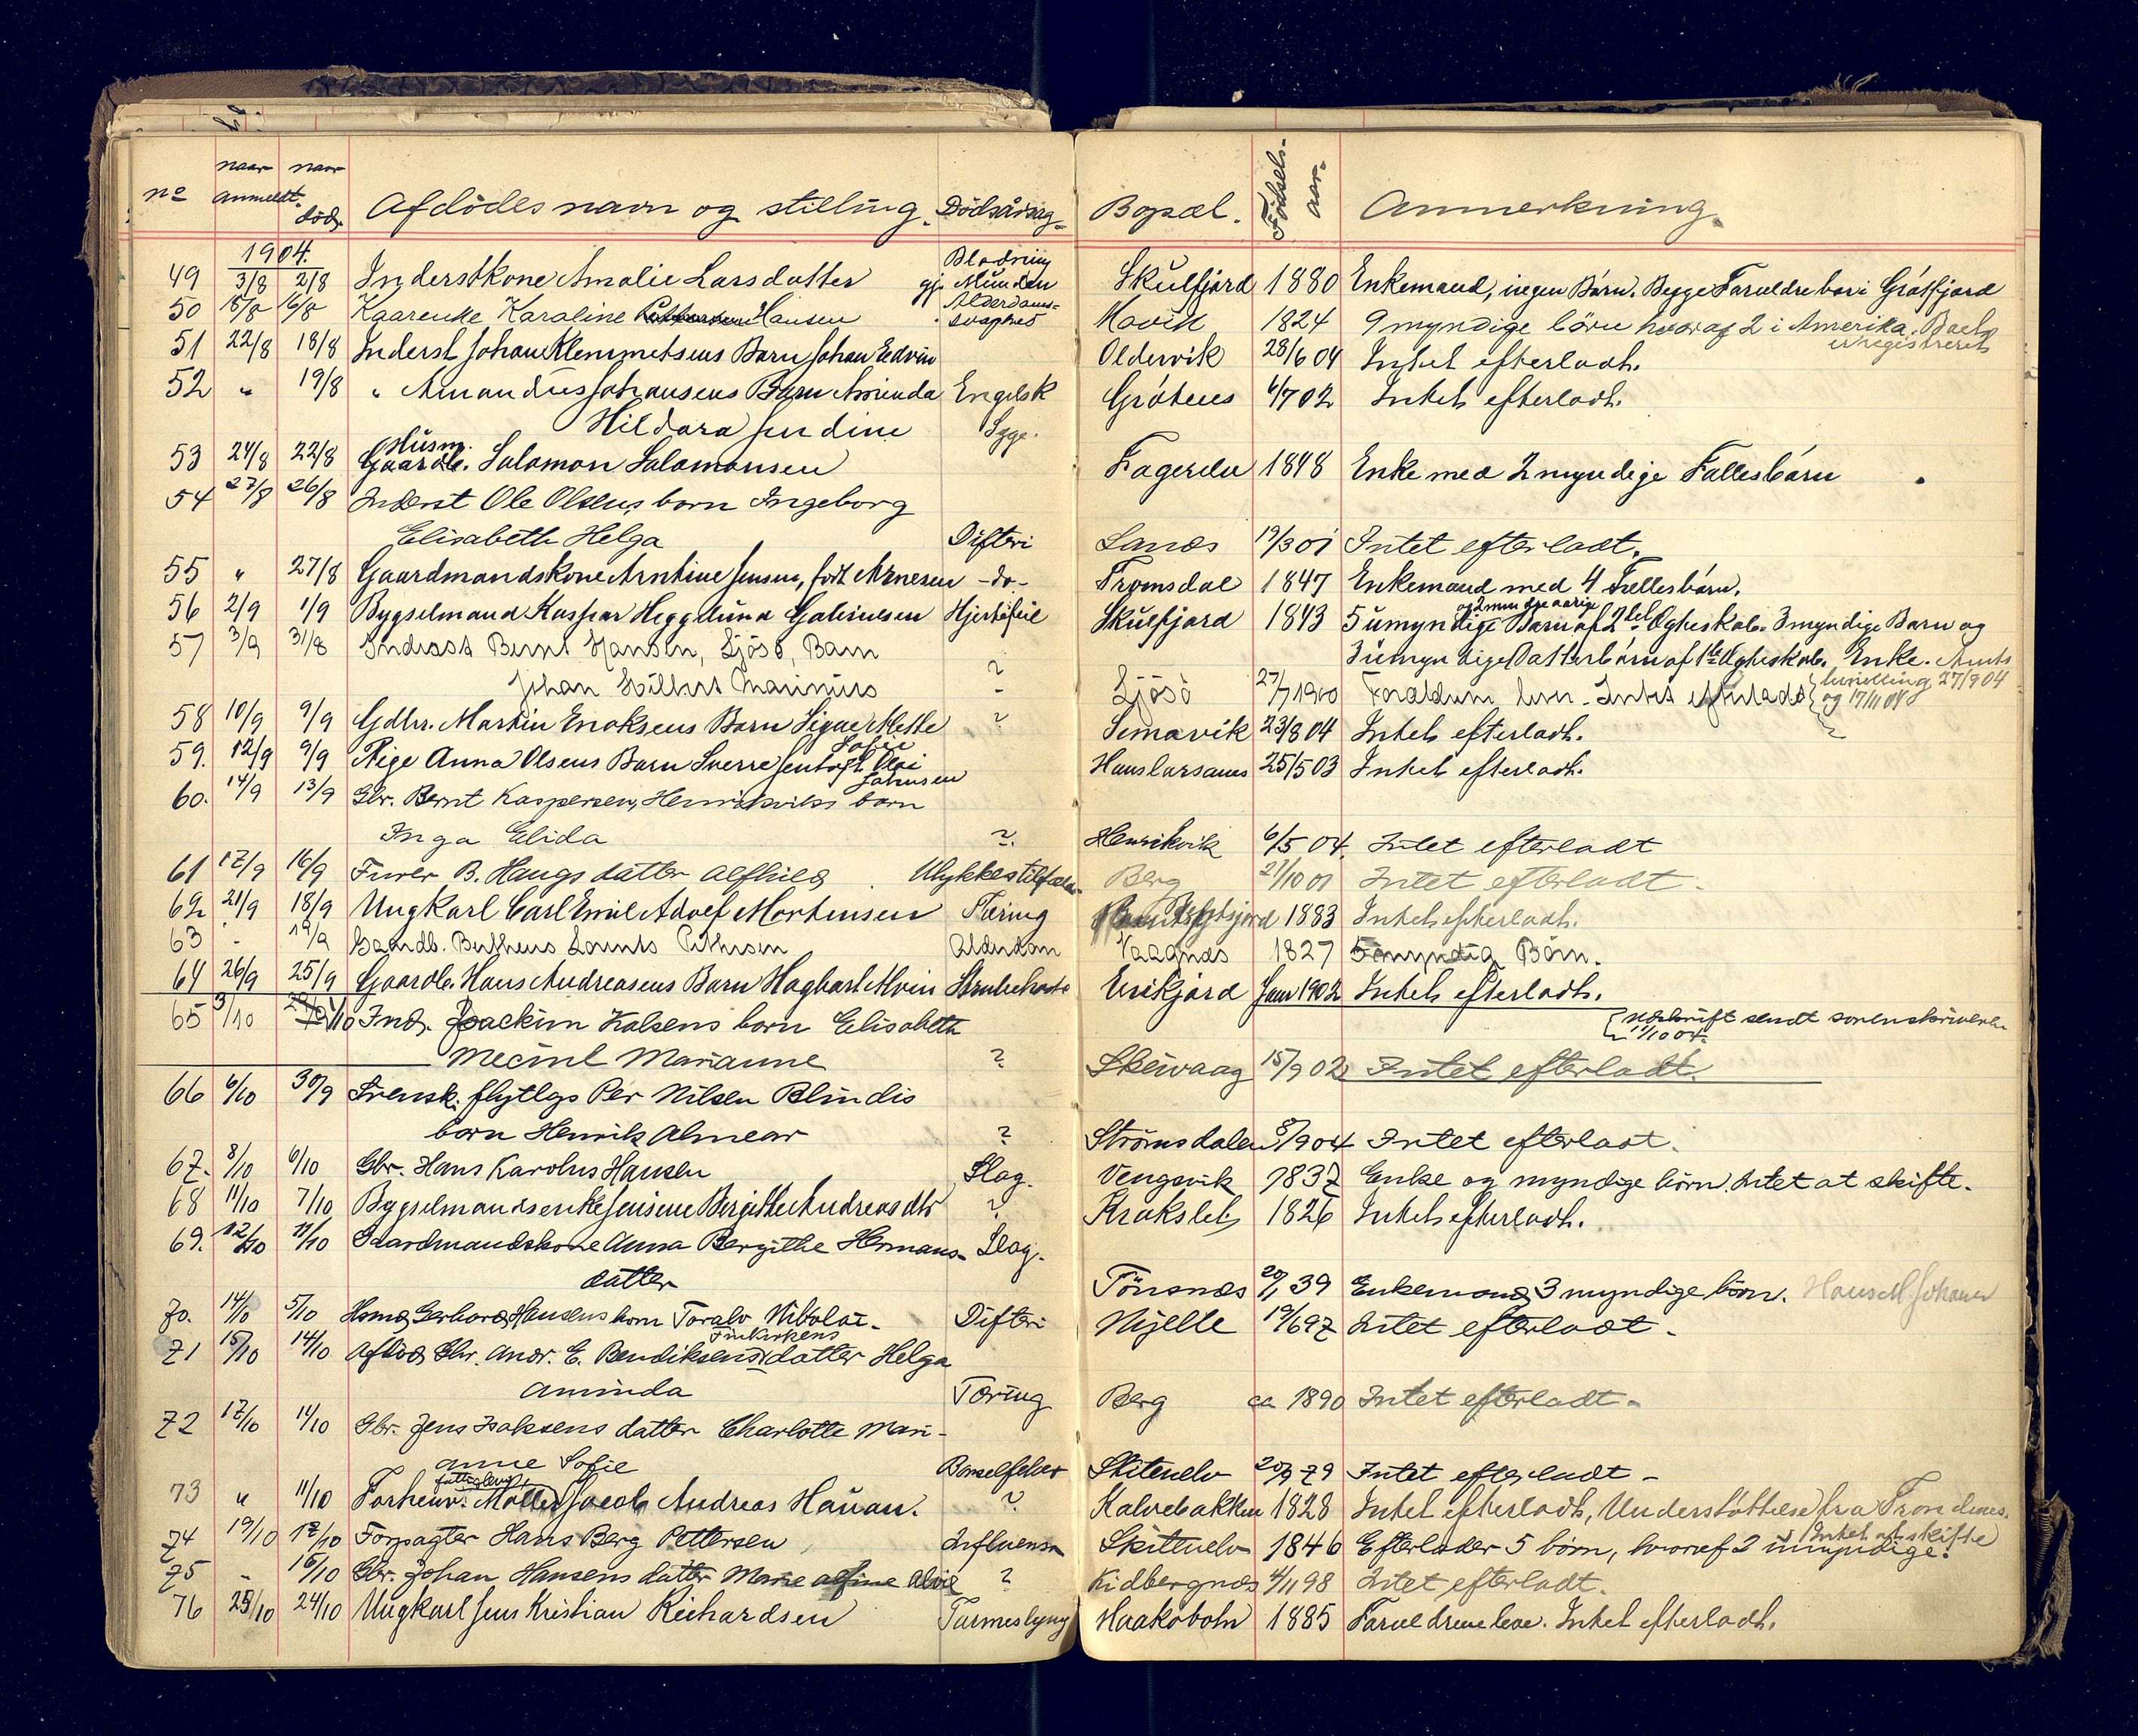 no naar anmeldt. naar död. Afdödes navn og stilling. Dödsårsag. Bopæl. Födsels-aar. Anmerkning.
1904.
49 3/8 2/8 Inderstkone Amalie Larsdatter Blödning gj. Munden Skulfjord 1880 Enkemand, ingen Börn. Begge Foreldre bor i Grötfjord
50 18/8 16/8 Kaarenke Karoline Hansen Alderdoms-svaghed Movik 1824 9 myndige börn hvoraf 2 i Amerika. Boet er registreret
51 22/8 18/8 Inderst Johan Klemmetsens Barn Johan Edvin Oldervik 28/6 04 Intet efterladt.
52 " 19/8 " Amandus Johansens Barn Arinda Engelsk Grötnes 6/7 02 Intet efterladt.
Hildara Jendine Syge.
53 24/8 22/8 Husm. Gaardb. Salomon Salomonsen Fagerelv 1848 Enke med 2 myndige Fællesbörn
54 27/8 26/8 Inderst Ole Olsens born Ingeborg
Elisabeth Helga Difteri Sands 19/3 01 Intet efterladt.
55 " 27/8 Gaardmandskone Arntine Jensen, född Arnesen -do- Tromsdal 1847 Enkemand med 4 Fællesbörn.
56 2/9 1/9 Bygselmand Kaspar Hegglund Gabrielsen Hjertefeil Skulfjord 1843 5 umyndige Börn af 2det Egteskab. 3 myndige Börn og
3 umyndige Datterbörn af 1ste Egteskab. Enke.
57 3/9 31/8 Inderst Bernt Hansen, Sjösö, Barn
Johan Hilbert Marinius ? Sjösö 27/7 1900 Forældrene lever. Intet efterladt 27/9 04 og 17/11 04
58 10/9 9/9 Gdbr. Martin Enoksens Barn Signe Mette ? Simavik 23/8 04 Intet efterladt.
59. 12/9 9/9 Pige Anna Olsens Barn Sverre Olai Johnsen Hanslarsanes 25/5 03 Intet efterladt.
60. 14/9 13/9 Gbr. Bernt Kaspersen, Henrikviks born
Inga Elida ?. Henrikvik 6/5 04. Intet efterladt
61 17/9 16/9 Furer B. Haugs datter Alfhild Ulykkestilfælde Berg 27/10 01 Intet efterladt.
62 21/9 18/9 Ungkarl Carl Emil Adolf Mortensen Tæring 1883 Intet efterladt.
63 - 19/9 Gaardb. Alderdom Vaagnes 1827 myndig Börn.
64 26/9 25/9 Gaardb. Hans Andreasens Barn Hagbart Alvin Strubehoste Erikjord Janr 1902 Intet efterladt.
65 3/10 1/10 Ind. Joackim Kalsens born Elisabeth Udskrift sendt sorenskriveren 11/10 04.
Meciml Marianne ? Skevaag 15/9 02 Intet efterladt.
66 6/10 30/9 Svensk flytlap Per Nilsen Blindis
born Henrik Almear ? Strömsdalen 8/9 04 Intet efterladt.
67. 8/10 6/10 Gbr. Hans Karolus Hansen Slag. Vengsvik 1837 Enke og myndige börn. Intet at skifte.
68 11/10 7/10 Bygselmandsenke Jensine Bergitte Andreasdtr ? Krokslet 1826 Intet efterladt.
69. 12/10 11/10 Gaardmandskone Anna Bergithe Hermans- Slag.
datter Tönsnes 20/1 39 Enkemand, 3 myndige börn. Hans M Johans
70. 14/10 5/10 Hsmd. Gerhard Hansens born Toralv Nikolai- Difteri Mjelle 19/6 97 Intet efterladt.
71 15/10 14/10 Afdöd Gbr. Andr. E. Bendiksens Finkirkens datter Helga
Aminda Tæring Berg ca 1890 Intet efterladt-
72 17/10 11/10 Gbr. Jens Isaksens datter Charlotte Mari-
anne Sofie Barselfeber Skitenelv 20/9 79 Intet efterladt-
73 " 11/10 Forhenv. fattiglem, Möller Jacob Andreas Hauan. ? Kalvebakken 1828 Intet efterladt, Understöttelse fra Trondenes.
74 19/10 17/10 Forpagter Hans Berg Pettersen Influensa Skittenelv 1846 Efterlader 5 börn, hvoraf 2 umyndige. Intet at skifte
75 - 16/10 Gbr. Johan Hansens datter Marie ? Kidbergnes 4/11 98 Intet efterladt.
76 25/10 24/10 Ungkarl Jens Kristian Reichardsen Tarmeslyng Haakobotn 1885 Foreldrene leve. Intet efterladt.